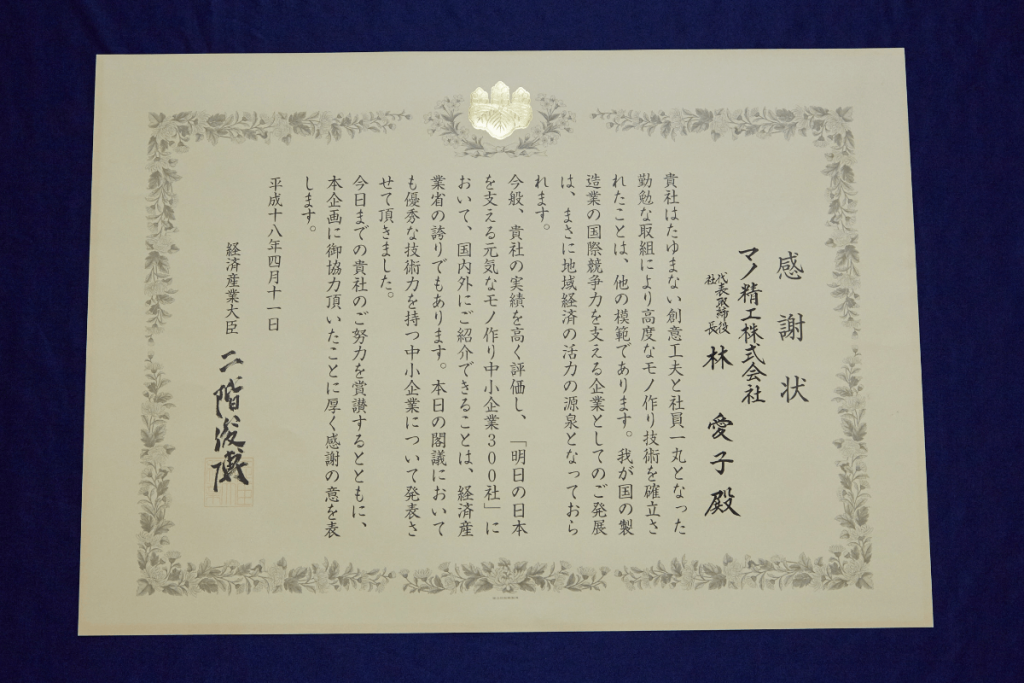 感謝状
マノ精工株式会社
代表取締役
社長
林 愛子殿
貴社はたゆまない創意工夫と社員一丸となった
勤勉な取組により高度なモノ作り技術を確立さ
れたことは、他の模範であります。我が国の製
造業の国際競争力を支える企業としてのご発展
は、まさに地域経済の活力の源泉となっておら
れます。
今般、貴社の実績を高く評価し、「明日の日本
を支える元気なモノ作り中小企業300社」に
おいて、国内外にご紹介できることは、経済産
業省の誇りでもあります。本日の閣議において
も優秀な技術力を持つ中小企業について発表さ
せて頂きました。
今日までの貴社のご努力を賞讃するとともに、
本企画に御協力頂いたことに厚く感謝の意を表
します。
平成十八年四月十一日
経済産業大臣
二階俊博